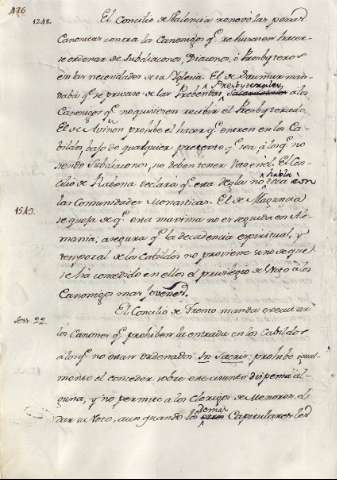 476
1248.
El Concilio de Valencia renovó las penas
Canonicas contra los Canonigos q.e rehusaren hacer-
se ordenar de Subdiaconos, Diaconos, ó Presbyteros
en las necesidades de su Yglesia. El de Saumur man-
daba q.e se privase de las Prebendas Presbyterales, a los
Canonigos q.e no quisieren recibir el Presbyterado.
El de Aviñon prohibe el hacer q.e entren en los Ca-
bildos, bajo de qualquier pretexto q.e sea, á los q.e no
siendo Subdiaconos, no deben tener voz en el. El Con-
cilio de Rabena declara q.e esta regla no habla con
las Comunidades Monasticas. El de Maguncia
1549.
se queja de q.e esta maxima no es seguida en Ale-
mania, asegura q.e la decadencia espiritual, y
temporal de los Cabildos no proviene sino de que
se ha concedido en ellos el privilegio de Voto a los
Canonigos mas jovenes.
Sess. 22.
El Concilio de Trento manda executar
los Canones q.e prohiben la entrada en los Cabildos
a los q.e no estan ordenados In Sacris; prohibe igual-
mente el conceder sobre este asunto dispensa al-
guna, y no permite a los Clerigos de Menores el
dar su Voto, aun quando los demas Capitulares les